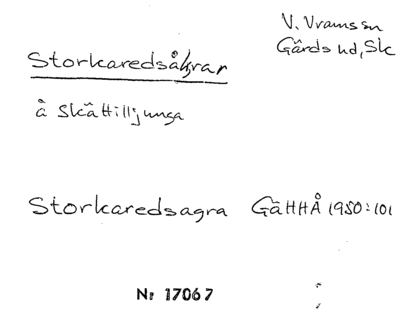 V. Vramssn
Gärds hd, Sk
Storkaredsåkrar
å Skättilljunga
Storkaredsagra GäHHÅ 1950:101
Nr 17067